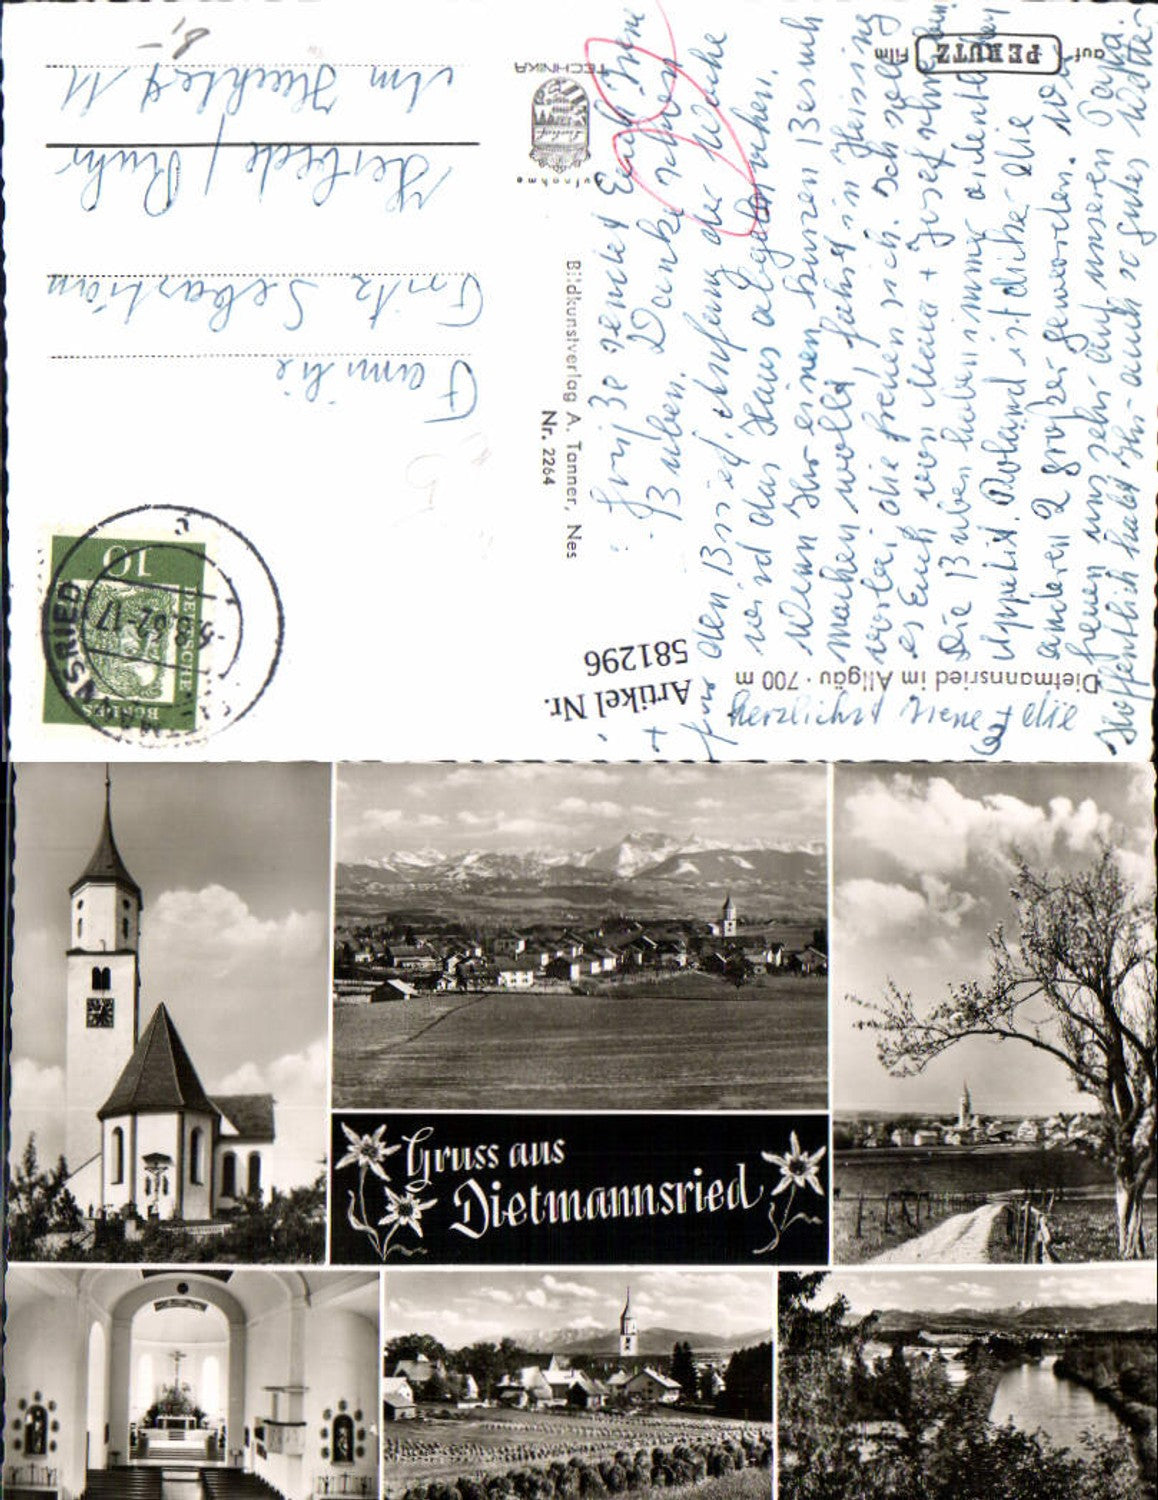 Dietmannsried im Allgäu · 700 m
Herzlichst Irene + die
Buben. Danke schön
für den Brief. Anfang der Woche
wird das Haus abgebrochen.
Wenn Ihr einen kurzen Besuch
machen wollt, fahrt in Heising
vorbei die freuen sich. Ich soll
es Euch von Mena + Josef schreiben
Die Buben haben immer ordentlichen
Appetit. Roland ist dicker die
anderen 2 größer geworden. Wir
freuen uns sehr auf unseren Papa.
Hoffentlich habt Ihr auch so gutes Wetter
Grüße sendet Euch Irene
+
Artikel Nr.
581296
Bildkunstverlag A. Tanner, Nes
Nr. 2264
Aufnahme
TECHNIKA
auf PERUTZ Film
DEUTSCHE
BUNDES
10
DIETMANNSRIED
62-17
Familie
Fritz Sebastian
Herbede / Ruhr
Am 11
8,-
Gruss aus
Dietmannsried